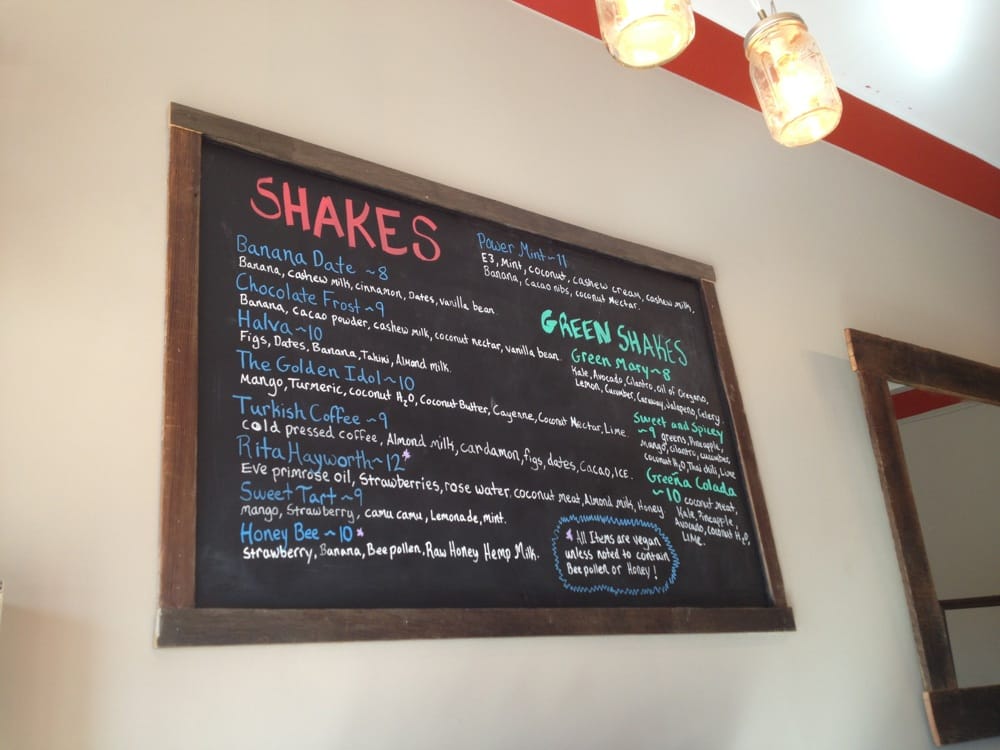 SHAKES
Banana Date ~8
Banana, cashew milk, cinnamon, Dates, vanilla bean
Chocolate Frost ~9
Banana, cacao powder, cashew milk, coconut nectar, vanilla bean
Halva ~10
Figs, Dates, Banana, Tahini, Almond milk.
The Golden Idol ~10
Mango, Turmeric, coconut H2O, Coconut Butter, Cayenne, Coconut Nectar, Lime.
Turkish Coffee ~9
cold pressed coffee, Almond milk, cardamon, figs, dates, Cacao, ICE.
Rita Hayworth ~12*
Eve primrose oil, Strawberries, rose water coconut meat, Almond milk, Honey
Sweet Tart ~9
Mango, Strawberry, camu camu, Lemonade, mint.
Honey Bee ~10*
Strawberry, Banana, Bee pollen, Raw Honey Hemp Milk.
Power Mint ~11
E3, Mint, coconut, cashew cream, cashew milk,
Banana, cacao nibs, coconut Nectar.
GREEN SHAKES
Green Mary ~8
Kale, Avocado, Cilantro, oil of Oregano,
Lemon, Cucumber, Caraway, Jalapeño, Celery
Sweet and Spicy
~9 greens, Pineapple,
Mango, Cilantro, cucumber
coconut H2O, Thai chili, Lime
Greeña Colada
~10 coconut meat,
Kale, Pineapple,
Avocado, coconut H2O,
LIME.
* All Items are vegan
unless noted to contain
Bee pollen or Honey!